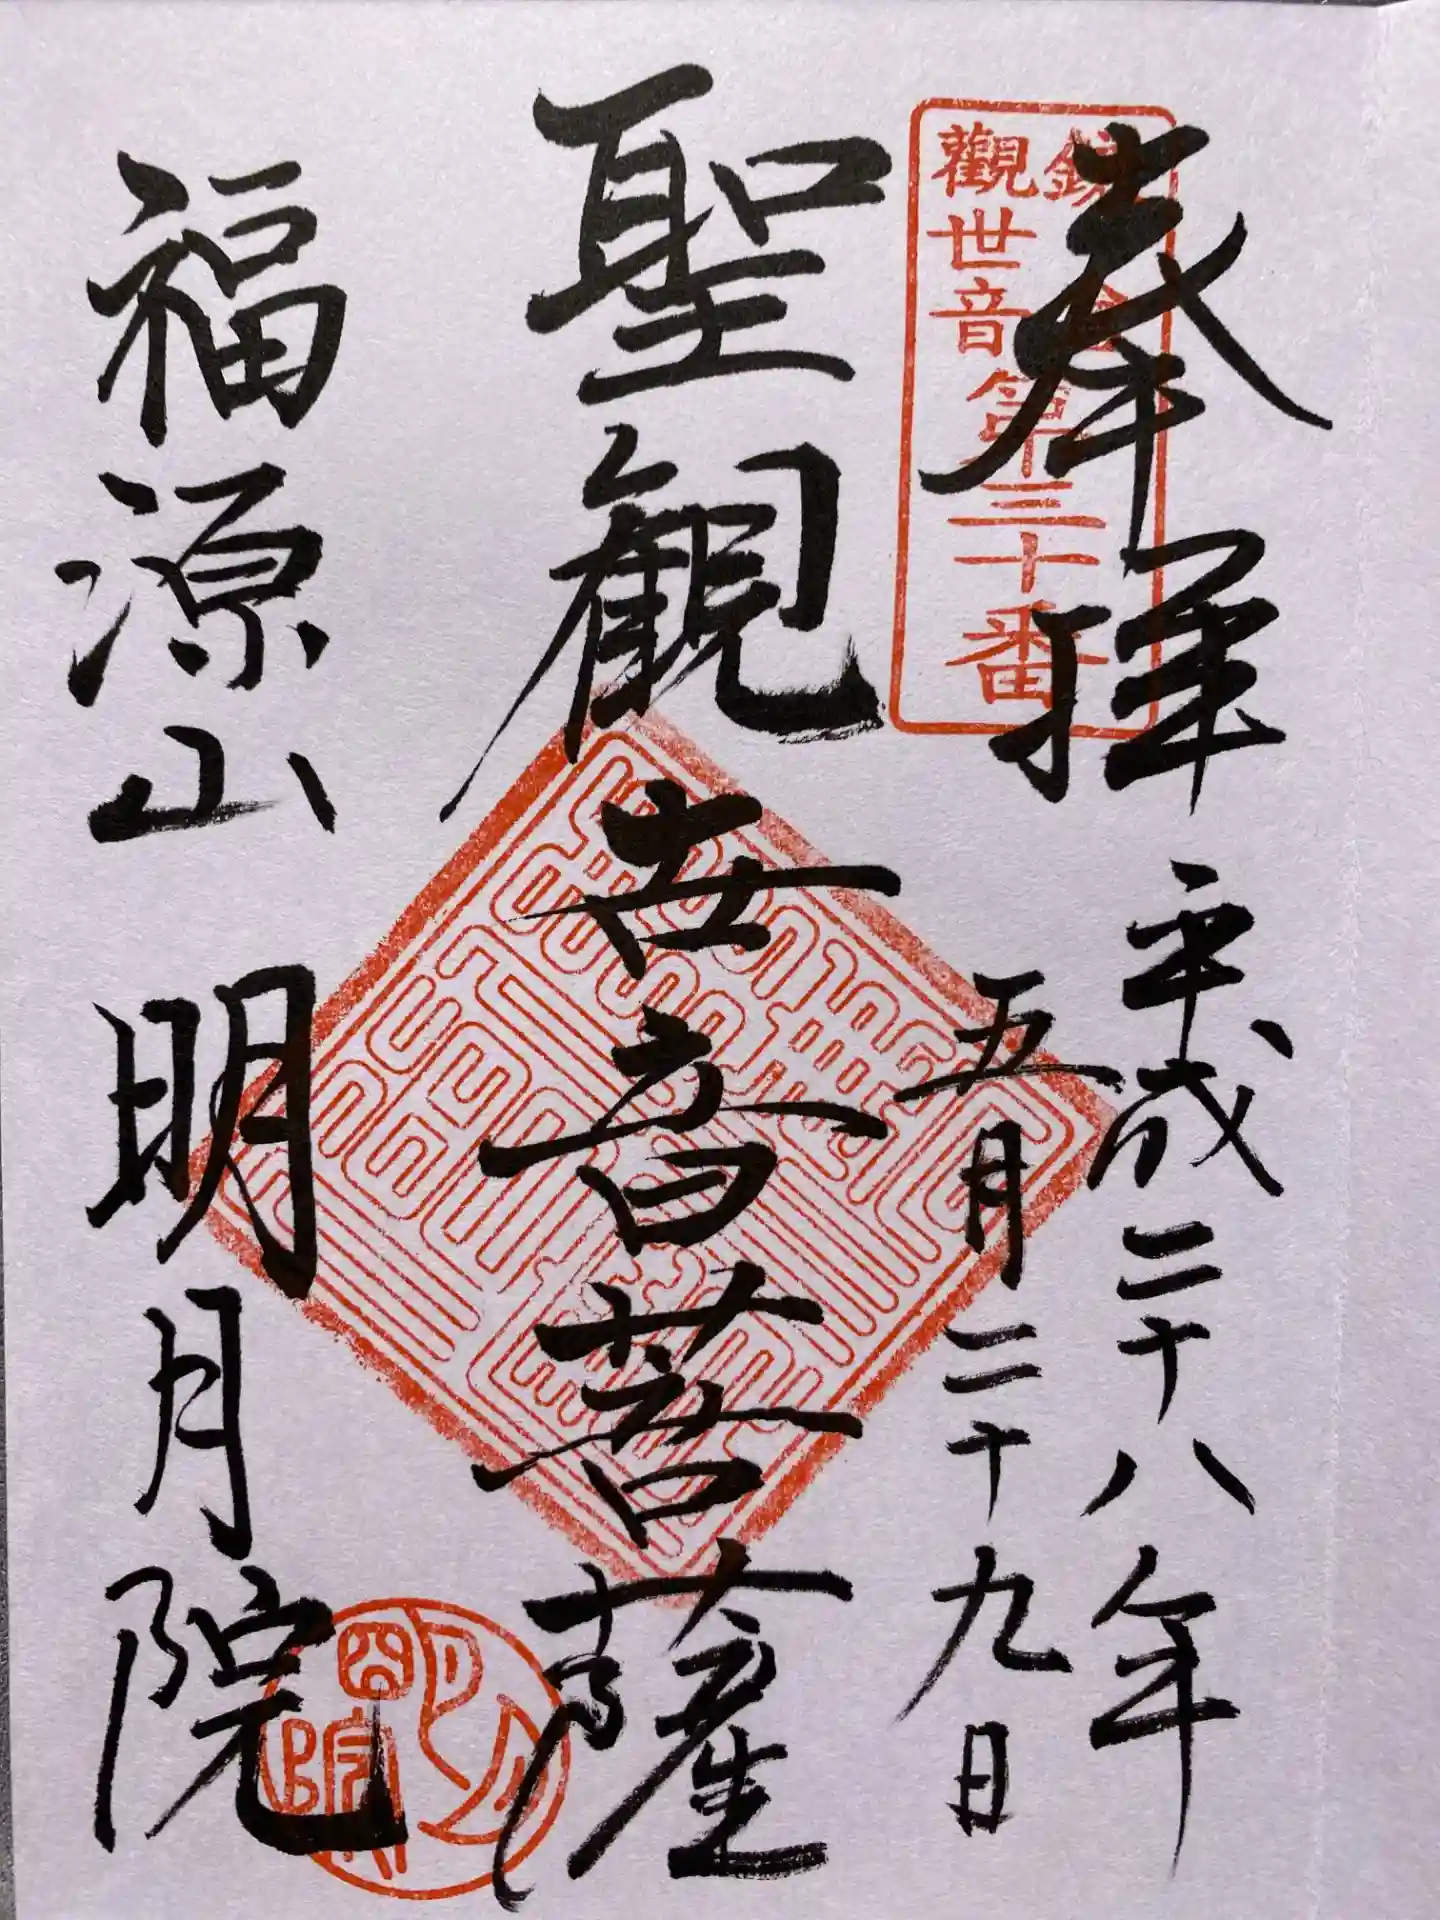 奉拝
平成二十八年
五月二十九日
鎌倉
觀世音第三十番
聖観世音菩薩
福源山
明月院